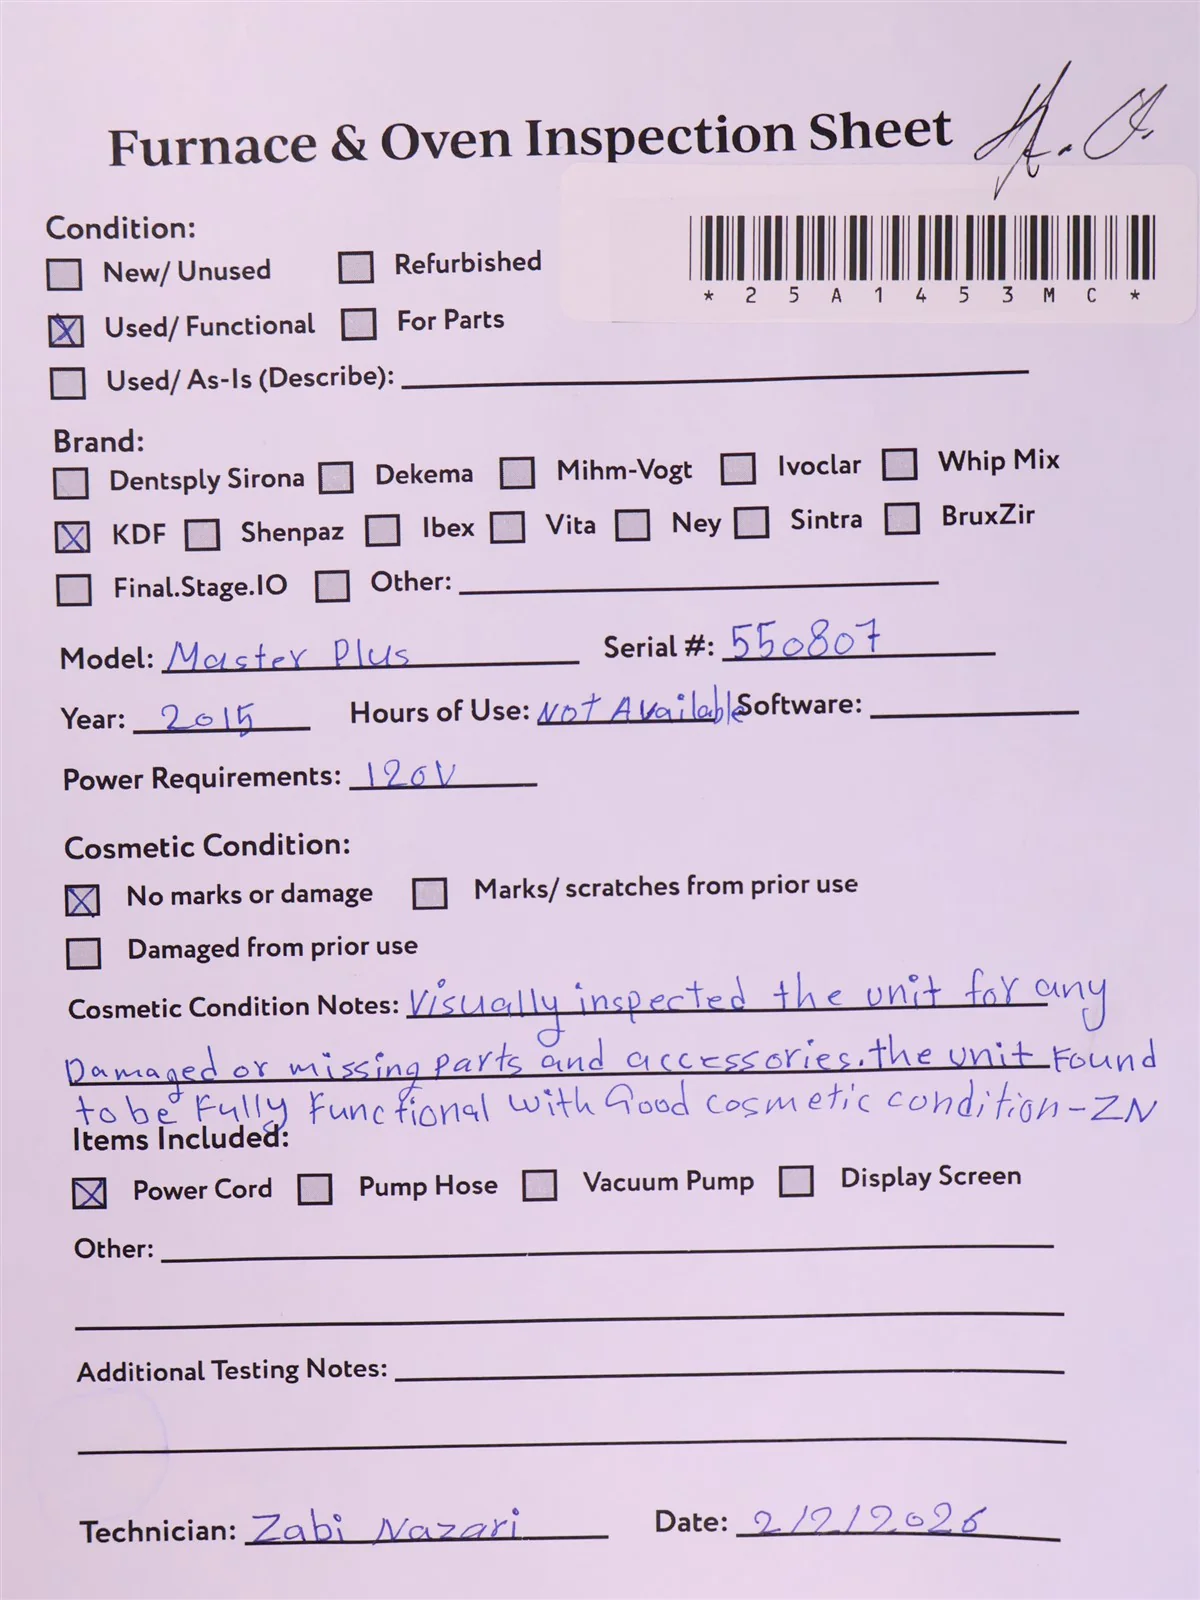 Furnace & Oven Inspection Sheet H. A.
*25A1453MC*
Condition:
New/ Unused Refurbished
Used/ Functional For Parts
Used/ As-Is (Describe):
Brand:
Dentsply Sirona Dekema Mihm-Vogt Ivoclar Whip Mix
KDF Shenpaz Ibex Vita Ney Sintra BruxZir
Final.Stage.IO Other:
Model: Master Plus Serial #: 550807
Year: 2015 Hours of Use: Not Available Software:
Power Requirements: 120V
Cosmetic Condition:
No marks or damage Marks/ scratches from prior use
Damaged from prior use
Cosmetic Condition Notes: Visually inspected the unit for any
Damaged or missing parts and accessories. the unit Found
to be Fully Functional with Good cosmetic condition - ZN
Items Included:
Power Cord Pump Hose Vacuum Pump Display Screen
Other:
Additional Testing Notes:
Technician: Zabi Nazari Date: 2/2/2026